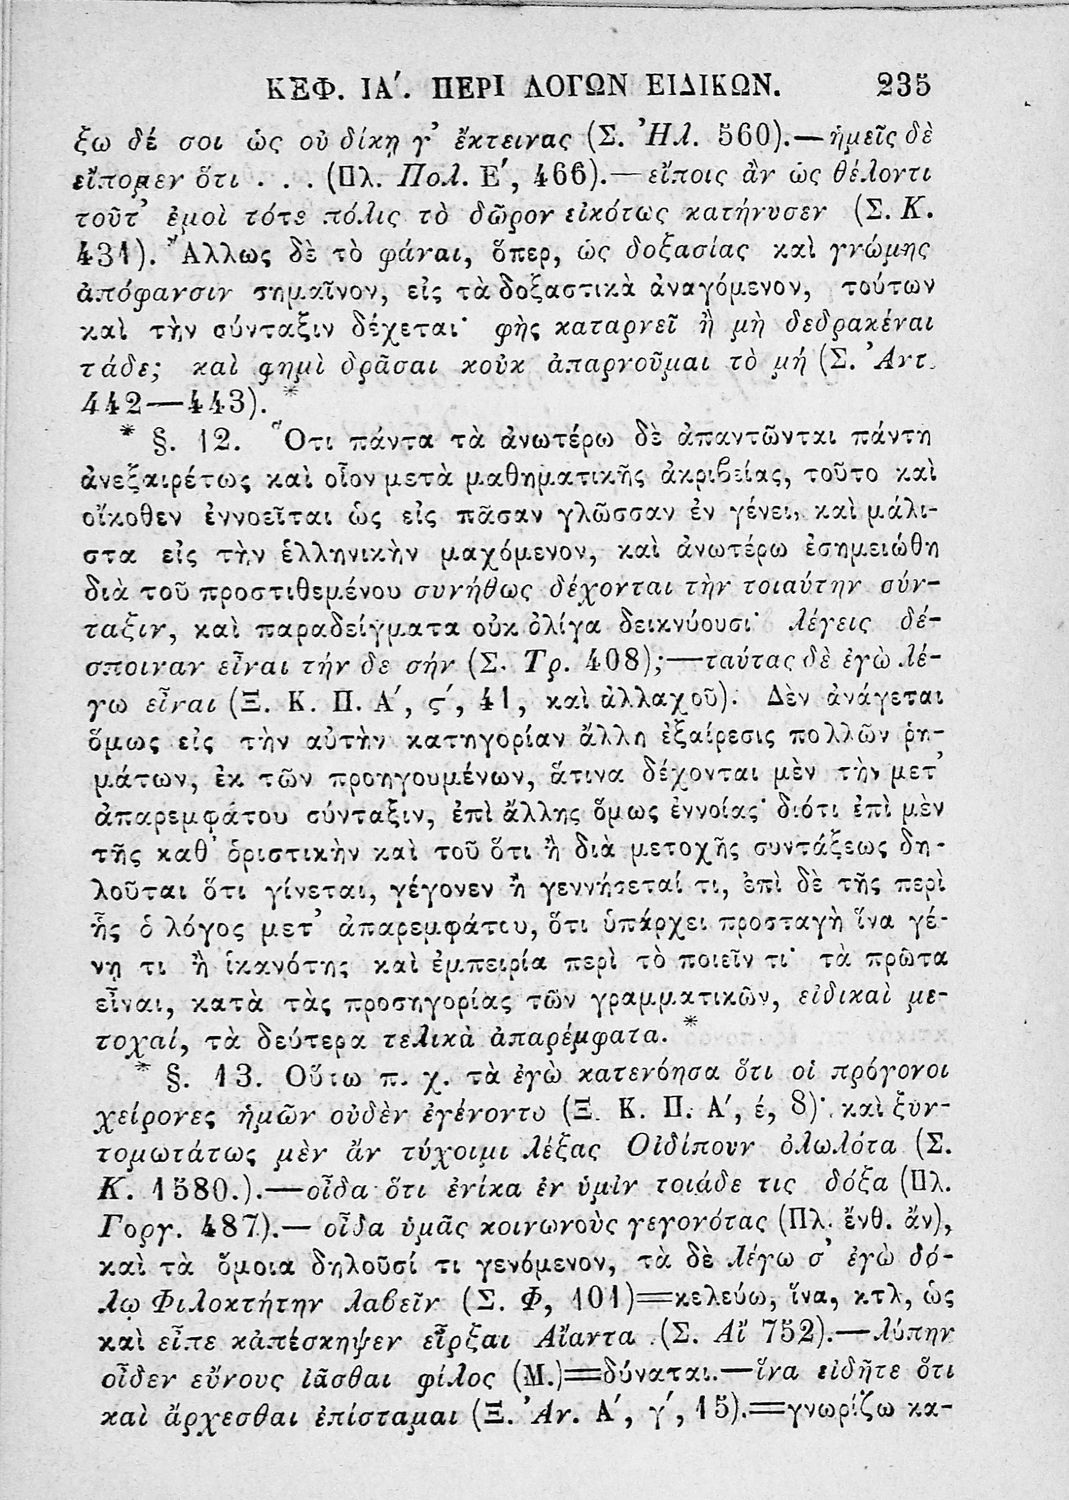 ΚΕΦ. ΙΑ΄. ΠΕΡΙ ΛΟΓΩΝ ΕΙΔΙΚΩΝ. 235
ξω δέ σοι ὡς οὐ δίκῃ γ’ ἔκτεινας (Σ. Ἠλ. 560).—ἡμεῖς δὲ
εἴπομεν ὅτι . . . (Πλ. Πολ. Ε΄, 466).—εἴποις ἂν ὡς θέλοντι
τοῦτ’ ἐμοὶ τότε πόλις τὸ δῶρον εἰκότως κατήνυσεν (Σ. Κ.
431). Ἄλλως δὲ τὸ φάναι, ὅπερ, ὡς δοξασίας καὶ γνώμης
ἀπόφανσιν σημαῖνον, εἰς τὰ δοξαστικὰ ἀναγόμενον, τούτων
καὶ τὴν σύνταξιν δέχεται· φὴς καταρνεῖ ἢ μὴ δεδρακέναι
τάδε; καὶ φημὶ δρᾶσαι κοὐκ ἀπαρνοῦμαι τὸ μή (Σ. Ἀντ.
442—443). *
* §. 12. Ὅτι πάντα τὰ ἀνωτέρω δὲ ἀπαντῶνται πάντη
ἀνεξαιρέτως καὶ οἷον μετὰ μαθηματικῆς ἀκριβείας, τοῦτο καὶ
οἴκοθεν ἐννοεῖται ὡς εἰς πᾶσαν γλῶσσαν ἐν γένει, καὶ μάλι-
στα εἰς τὴν ἑλληνικὴν μαχόμενον, καὶ ἀνωτέρω ἐσημειώθη
διὰ τοῦ προστιθεμένου συνήθως δέχονται τὴν τοιαύτην σύν-
ταξιν, καὶ παραδείγματα οὐκ ὀλίγα δεικνύουσι· λέγεις δέ-
σποιναν εἶναι τήν δε σήν (Σ. Τρ. 408);—ταύτας δὲ ἐγὼ λέ-
γω εἶναι (Ξ. Κ. Π. Α΄, ϛ΄, 41, καὶ ἀλλαχοῦ). Δὲν ἀνάγεται
ὅμως εἰς τὴν αὐτὴν κατηγορίαν ἄλλη ἐξαίρεσις πολλῶν ῥη-
μάτων, ἐκ τῶν προηγουμένων, ἅτινα δέχονται μὲν τὴν μετ’
ἀπαρεμφάτου σύνταξιν, ἐπὶ ἄλλης ὅμως ἐννοίας· διότι ἐπὶ μὲν
τῆς καθ’ ὁριστικὴν καὶ τοῦ ὅτι ἢ διὰ μετοχῆς συντάξεως δη-
λοῦται ὅτι γίνεται, γέγονεν ἢ γεννήσεταί τι, ἐπὶ δὲ τῆς περὶ
ἧς ὁ λόγος μετ’ ἀπαρεμφάτου, ὅτι ὑπάρχει προσταγὴ ἵνα γέ-
νῃ τι ἢ ἱκανότης καὶ ἐμπειρία περὶ τὸ ποιεῖν τι· τὰ πρῶτα
εἶναι, κατὰ τὰς προσηγορίας τῶν γραμματικῶν, εἰδικαὶ με-
τοχαί, τὰ δεύτερα τελικὰ ἀπαρέμφατα. *
* §. 13. Οὕτω π. χ. τὰ ἐγὼ κατενόησα ὅτι οἱ πρόγονοι
χείρονες ἡμῶν οὐδὲν ἐγένοντο (Ξ. Κ. Π. Α΄, έ, 8)· καὶ ξυν-
τομωτάτως μὲν ἂν τύχοιμι λέξας Οἰδίπουν ὀλωλότα (Σ.
Κ. 1580.).—οἶδα ὅτι ἐνίκα ἐν ὑμῖν τοιάδε τις δόξα (Πλ.
Γοργ. 487).— οἶδα ὑμᾶς κοινωνοὺς γεγονότας (Πλ. ἔνθ. ἄν),
καὶ τὰ ὅμοια δηλοῦσί τι γενόμενον, τὰ δὲ λέγω σ’ ἐγὼ δό-
λῳ Φιλοκτήτην λαβεῖν (Σ. Φ, 101)=κελεύω, ἵνα, κτλ, ὡς
καὶ εἶπε κἀπέσκηψεν εἶρξαι Αἴαντα (Σ. Αἴ 752).—λύπην
οἶδεν εὔνους ἰᾶσθαι φίλος (Μ.)=δύναται.—ἵνα εἰδῆτε ὅτι
καὶ ἄρχεσθαι ἐπίσταμαι (Ξ. Ἀν. Α΄, γ΄, 15).=γνωρίζω κα-